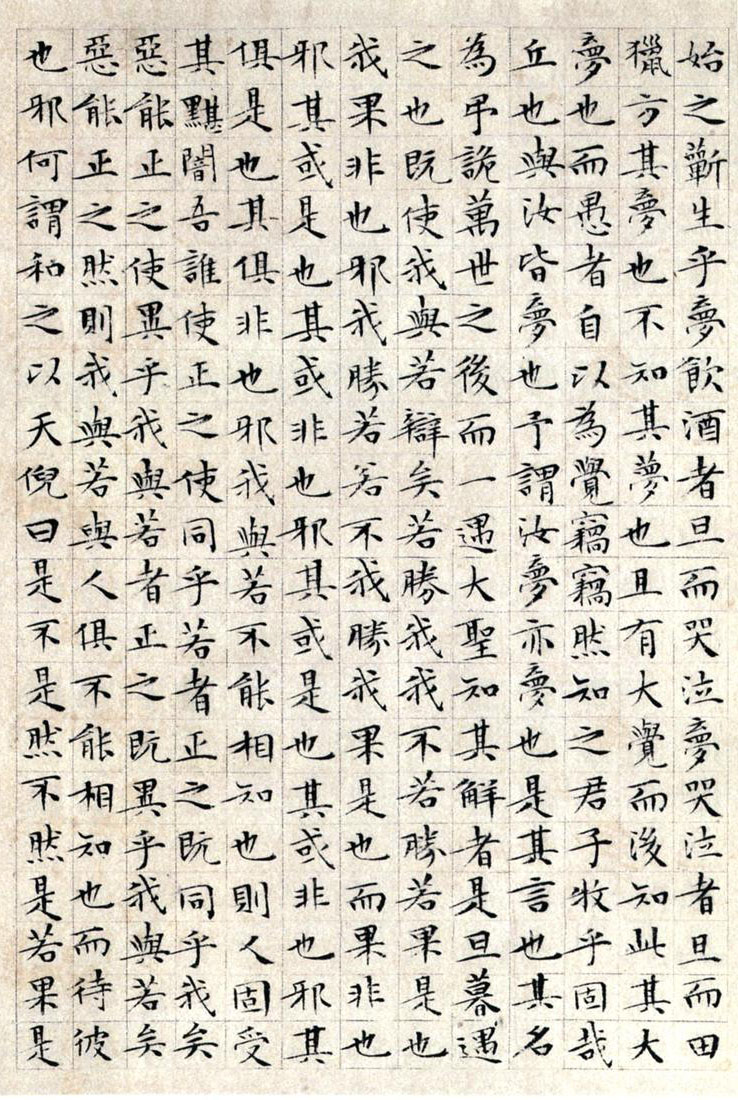 始之蘄生乎夢飲酒者旦而哭泣夢哭泣者旦而田
獵方其夢也不知其夢也且有大覺而後知此其大
夢也而愚者自以為覺竊竊然知之君子牧乎固哉
丘也與汝皆夢也予謂汝夢亦夢也是其言也其名
為弔詭萬世之後而一遇大聖知其解者是旦暮遇
之也既使我與若辯矣若勝我我不若勝若果是也
我果非也邪我勝若若不我勝我果是也而果非也
邪其或是也其或非也邪其或是也其或非也邪其
俱是也其俱非也邪我與若不能相知也則人固受
其黮闇吾誰使正之使同乎若者正之既同乎我矣
惡能正之使異乎我與若者正之既異乎我與若矣
惡能正之然則我與若與人俱不能相知也而待彼
也邪何謂和之以天倪曰是不是然不然是若果是